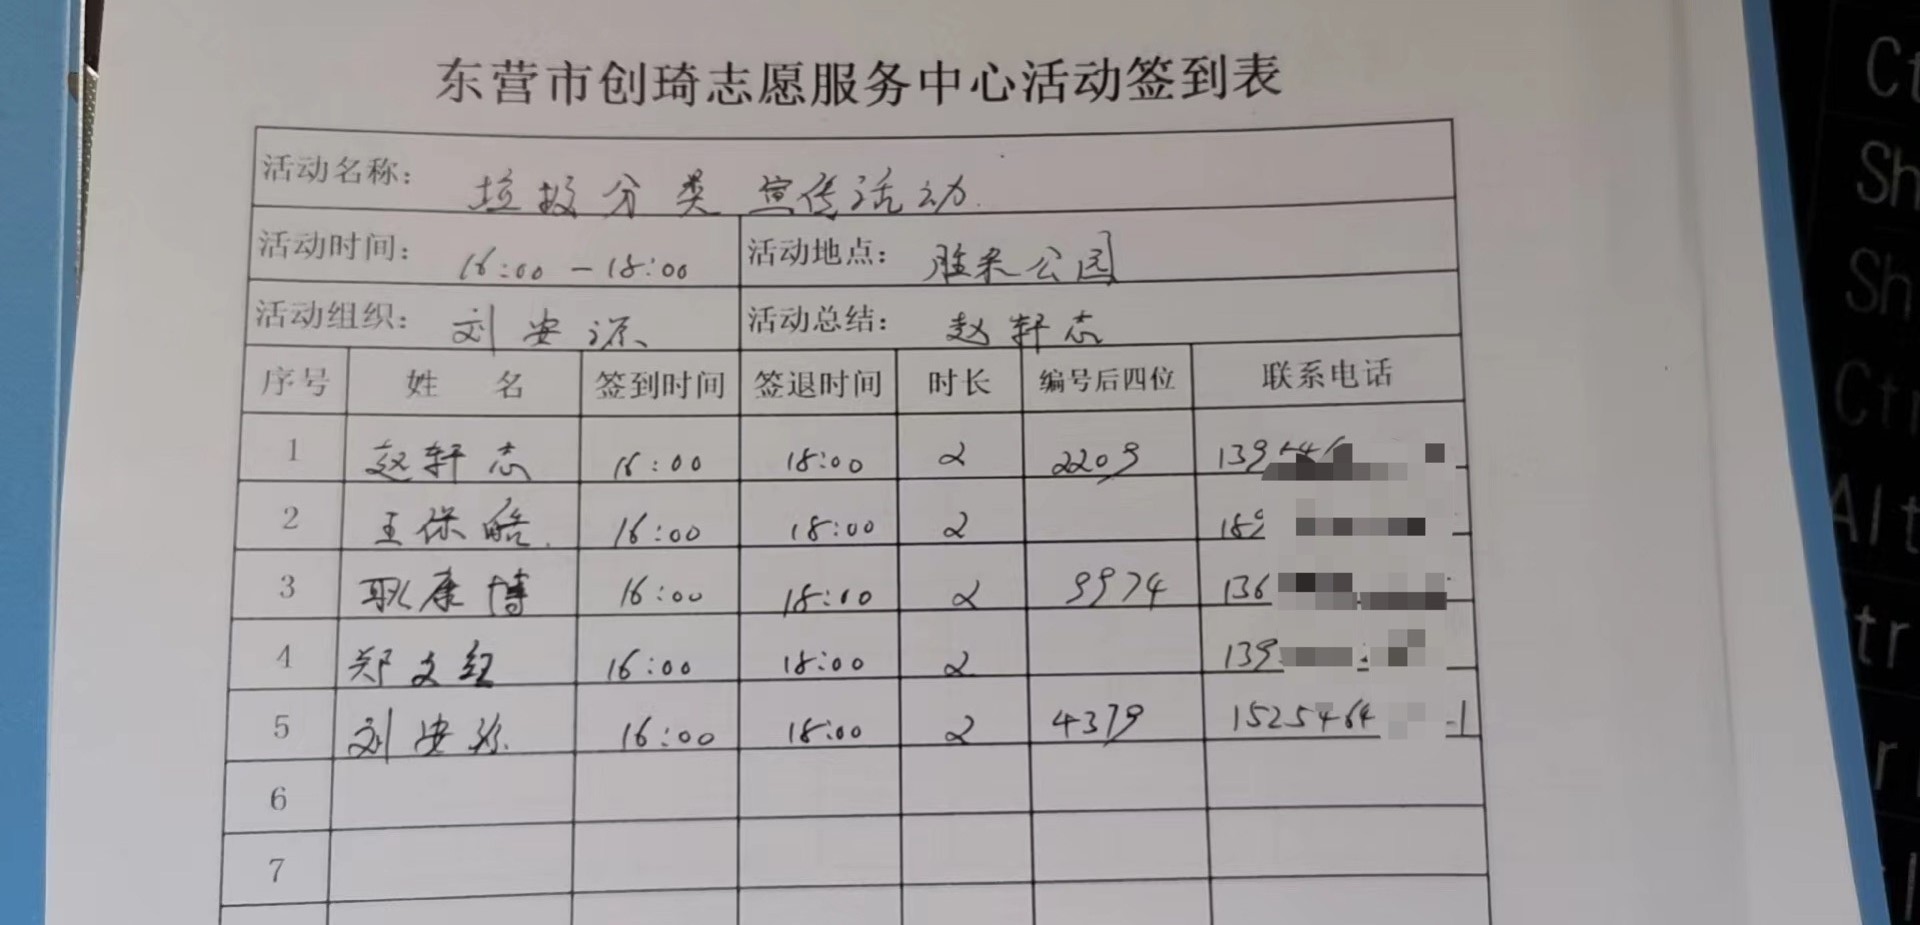 东营市创琦志愿服务中心活动签到表
活动名称： 垃圾分类宣传活动
活动时间： 16:00-18:00 活动地点： 胜采公园
活动组织： 刘安源 活动总结： 赵轩志
序号 姓名 签到时间 签退时间 时长 编号后四位 联系电话
1 赵轩志 16:00 18:00 2 2209 139
2 王保皓 16:00 18:00 2 189
3 耿康博 16:00 18:00 2 9974 136
4 郑文红 16:00 18:00 2 139
5 刘安源 16:00 18:00 2 4379 1525464
6
7
Ct
Sh
Sh
Ctr
Alt
tr